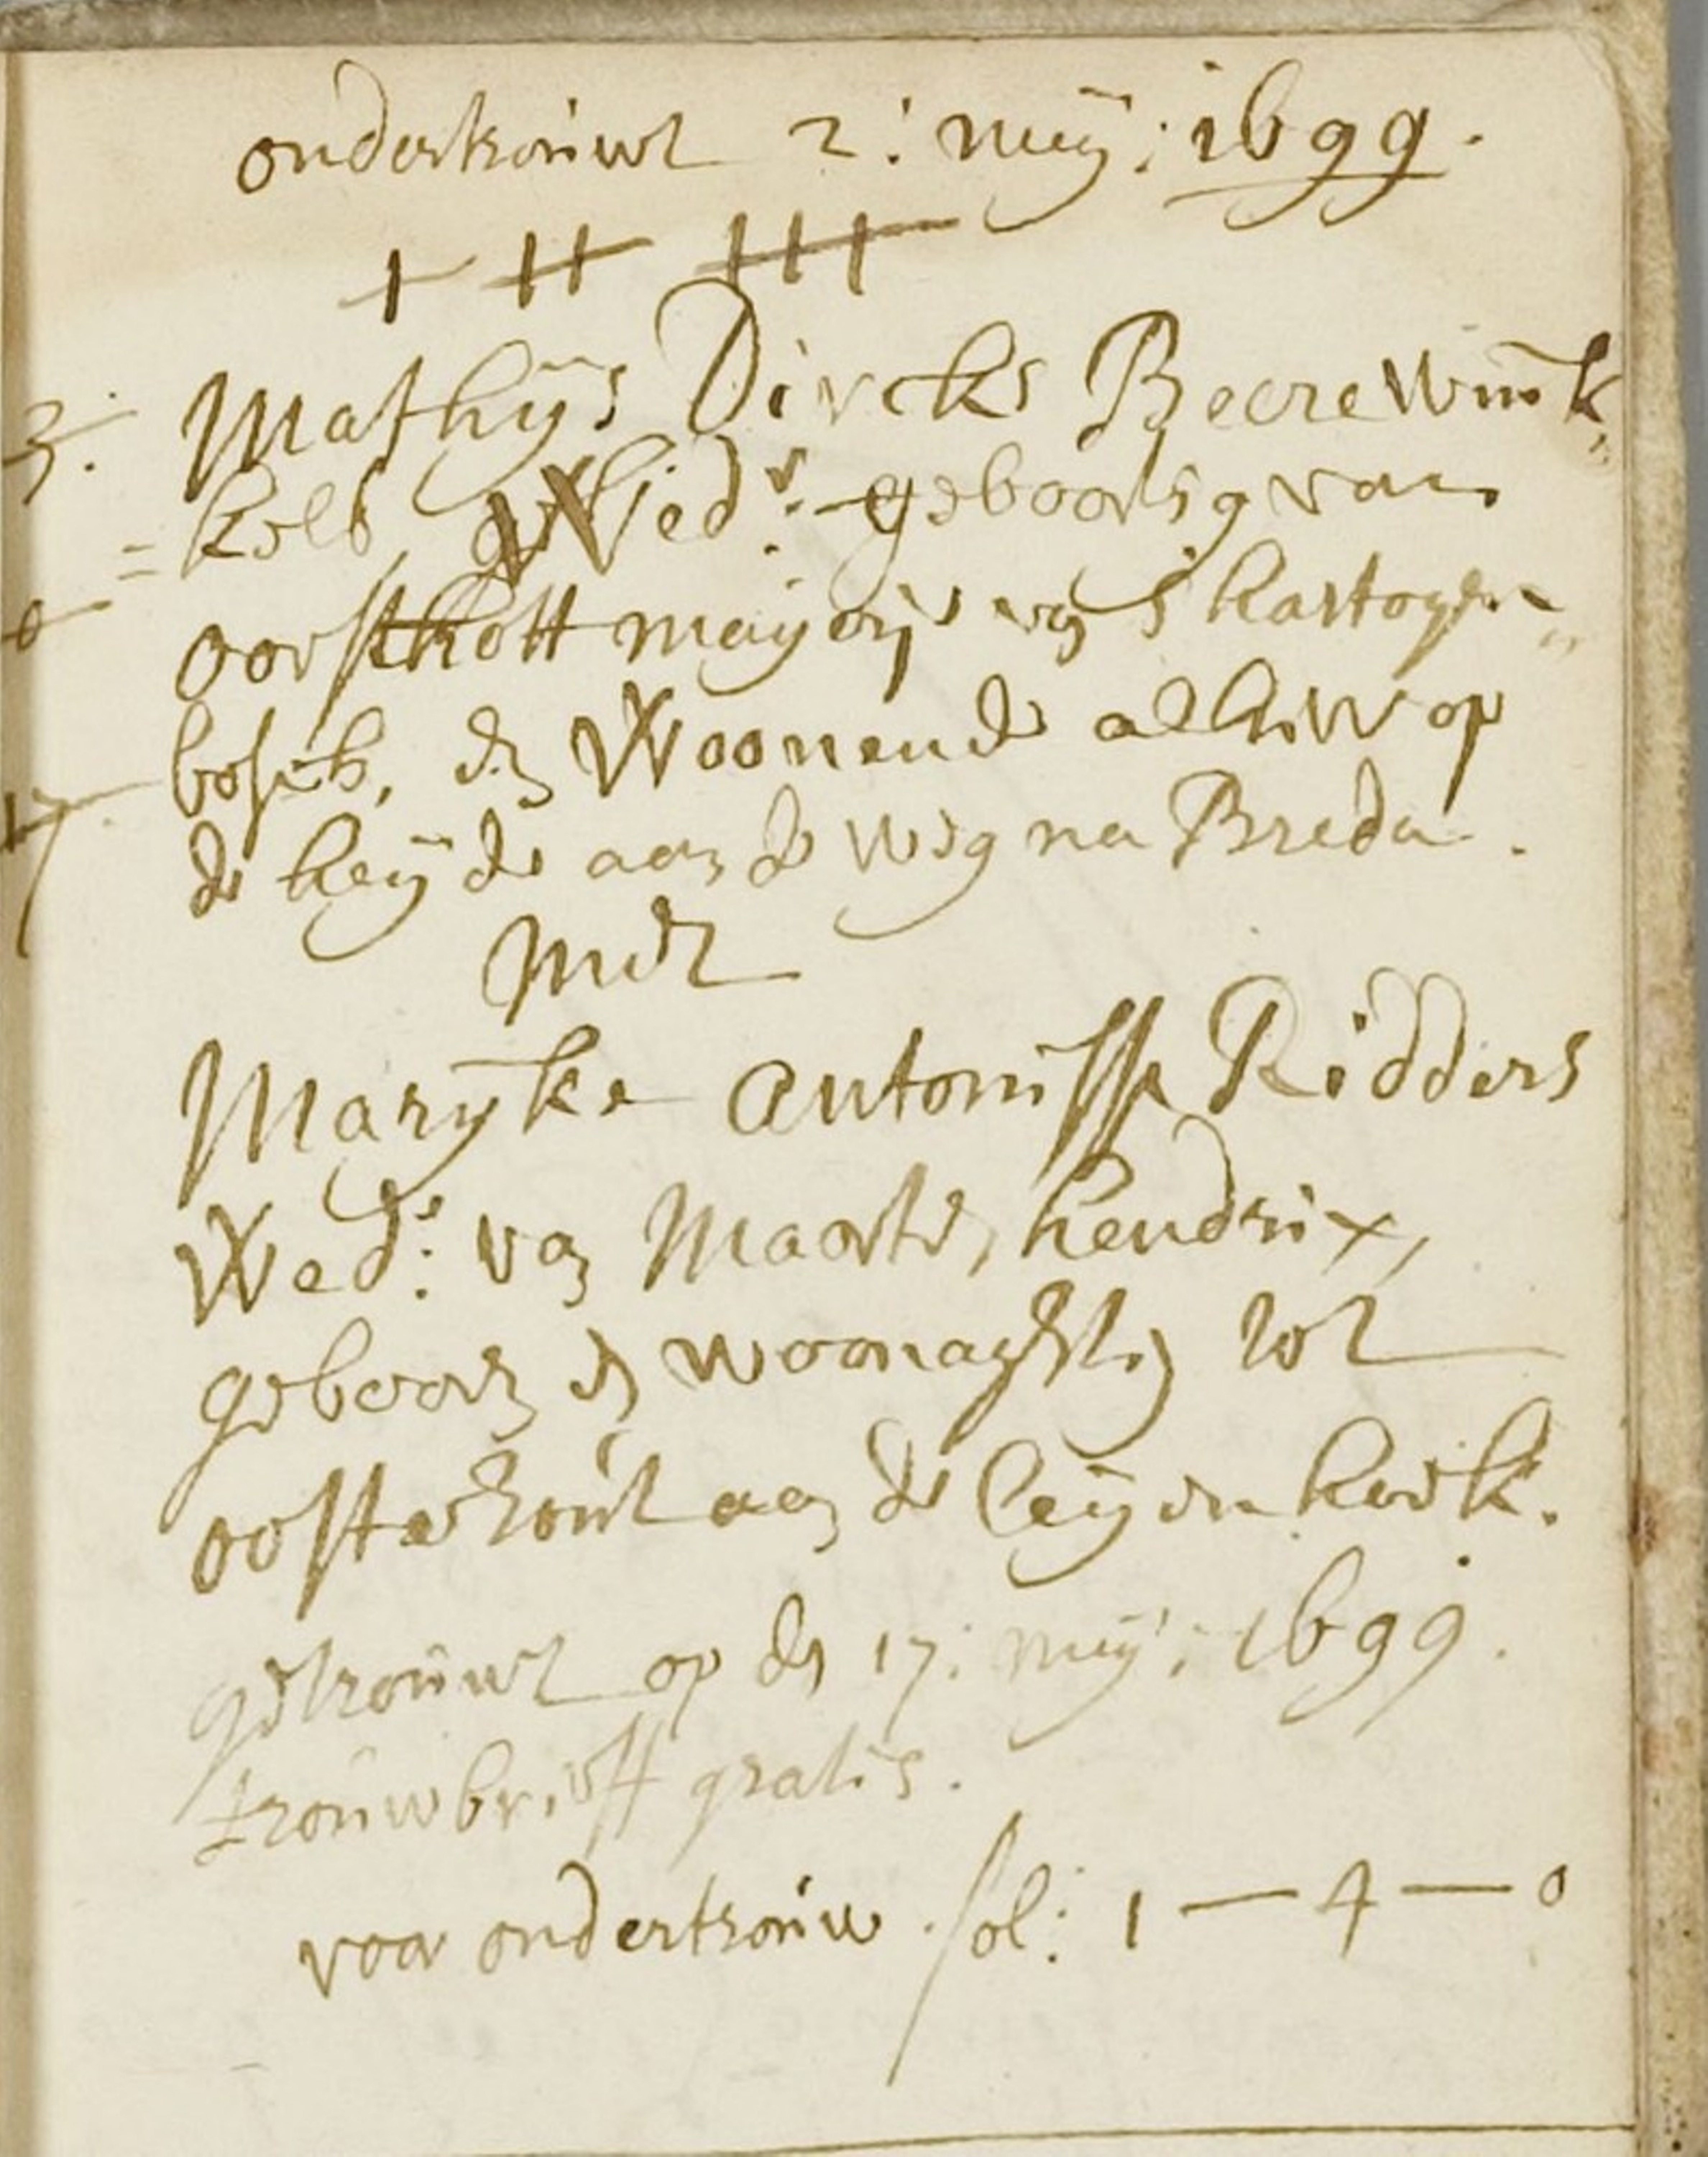 ondertrouwt 2: meij: 1699.
I II III
3. Mathijs Dircks Beerewinck„
= kolb, Wed.r geboortig van
0 oorschott maijerije van s hartogen„
bosch, en Woonende alhier op
17 de heijde aan de weg na Breda.
Met
Maryke Antonisse Ridders
Wed.e van Maarte, hendrix,
geboore en woonachtig tot
oosterhout aan de leijen kerk.
getrouwt op den 17: meij: 1699.
trouwbrieff gratis.
voor ondertrouw sol: 1 — 4 — 0